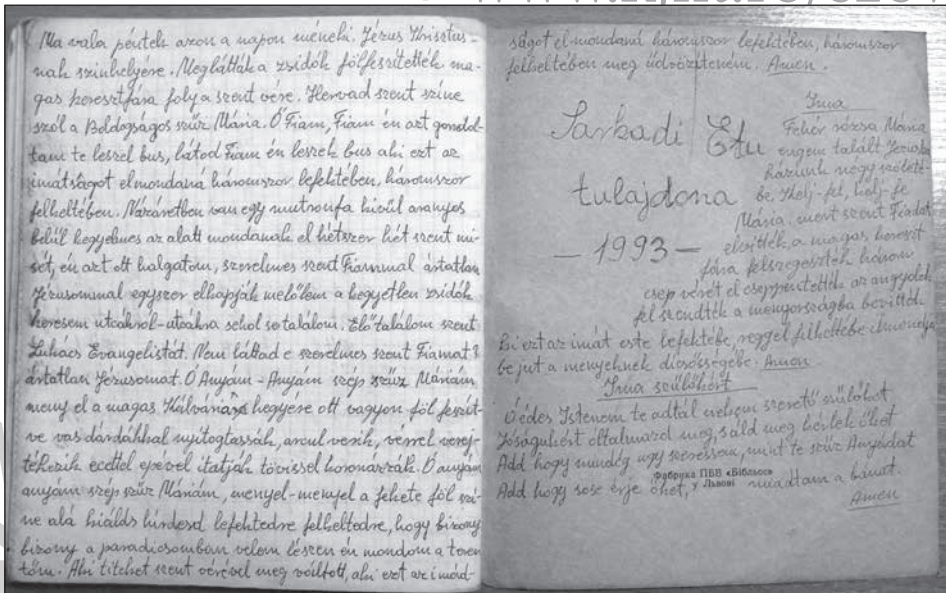 Ma vala péntek azon a napon méneki Jézus Krisztus-
nak szinhelyére. Meglátták a zsidók fölfeszítették ma-
gas keresztfára folya szent vére. Hervad szent szine
szól a Boldogságos szűz Mária. Ó Fiam, Fiam én azt gondol-
tam te leszel bus, látod Fiam én leszek bus aki ezt az
imátságot elmondaná háromszor lefektében, háromszor
felkeltében. Názáretben van egy kivül aranyos
belül kegyelmes az alatt mondanak el hétszer hét szent mi-
sét, én azt ott halgatom, szerelmes szent Fiammal ártatlan
Jézusommal egyszer elkapják melőlem a kegyetlen zsidók
keresem utcákról-utcákra sehol se találom. Elő találom szent
Lukács Evangelistát. Nem láttad e szerelmes szent Fiamat?
ártatlan Jézusomat. Ó Anyám-Anyám szép szűz Máriám
meny el a magas Kálvária hegyére ott vagyon föl feszít-
ve vas dárdákkal nyitogtassák, arcul verik, vérrel verej-
tékezik ecettel epével itatják tövissel koronázzák. Ó anyám
anyám szép szűz Máriám, menyel-menyel a fekete föl szi-
ne alá kiálds hirdesd lefektedre felkeltedre, hogy bizony
bizony a paradicsomban velem lészen én mondom a
Aki titeket szent vérével meg váltott, aki ezt az imád-
ságot el mondaná háromszor lefektében, háromszor
felkeltében meg üdvözíteném. Amen.
Sarkadi Etu
tulajdona
— 1993 —
Ima
Fehér rózsa Mária
engem talált Jézuska
házunk négy szöleté-
be. Kelj-fel, kelj-fe
Mária. mert szent Fiadat
elvitték a magas kereszt
fára felszegezték három
csep vérét el cseppintették az angyalok
fel szendték a menyországba bevitték.
Ki ezt az imát este lefektébe, reggel felkeltébe elmondja
be jut a menyeknek dicsőségébe. Amen
Ima szülőkért
Ó édes Istenem te adtál nekem szerető szülőket
Jóságukért oltalmazd meg, áldd meg kérlek őket
Add hogy mindég ugy szeressem, mint te szűz Anyádat
Add hogy sose érje őket, miadtam a bánat.
Amen
Фабрика ПБВ «Бібльос»
у Львові